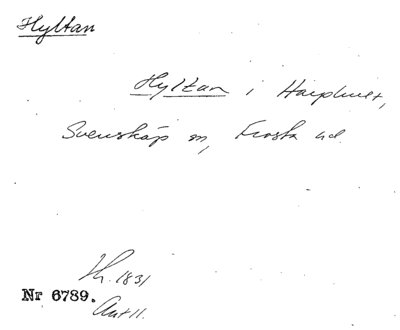 Hyltan
Hyltan i Harphult,
Svensköp sn, Frosta hd.
Th. 1831
Nr 6789.
Ant 11.